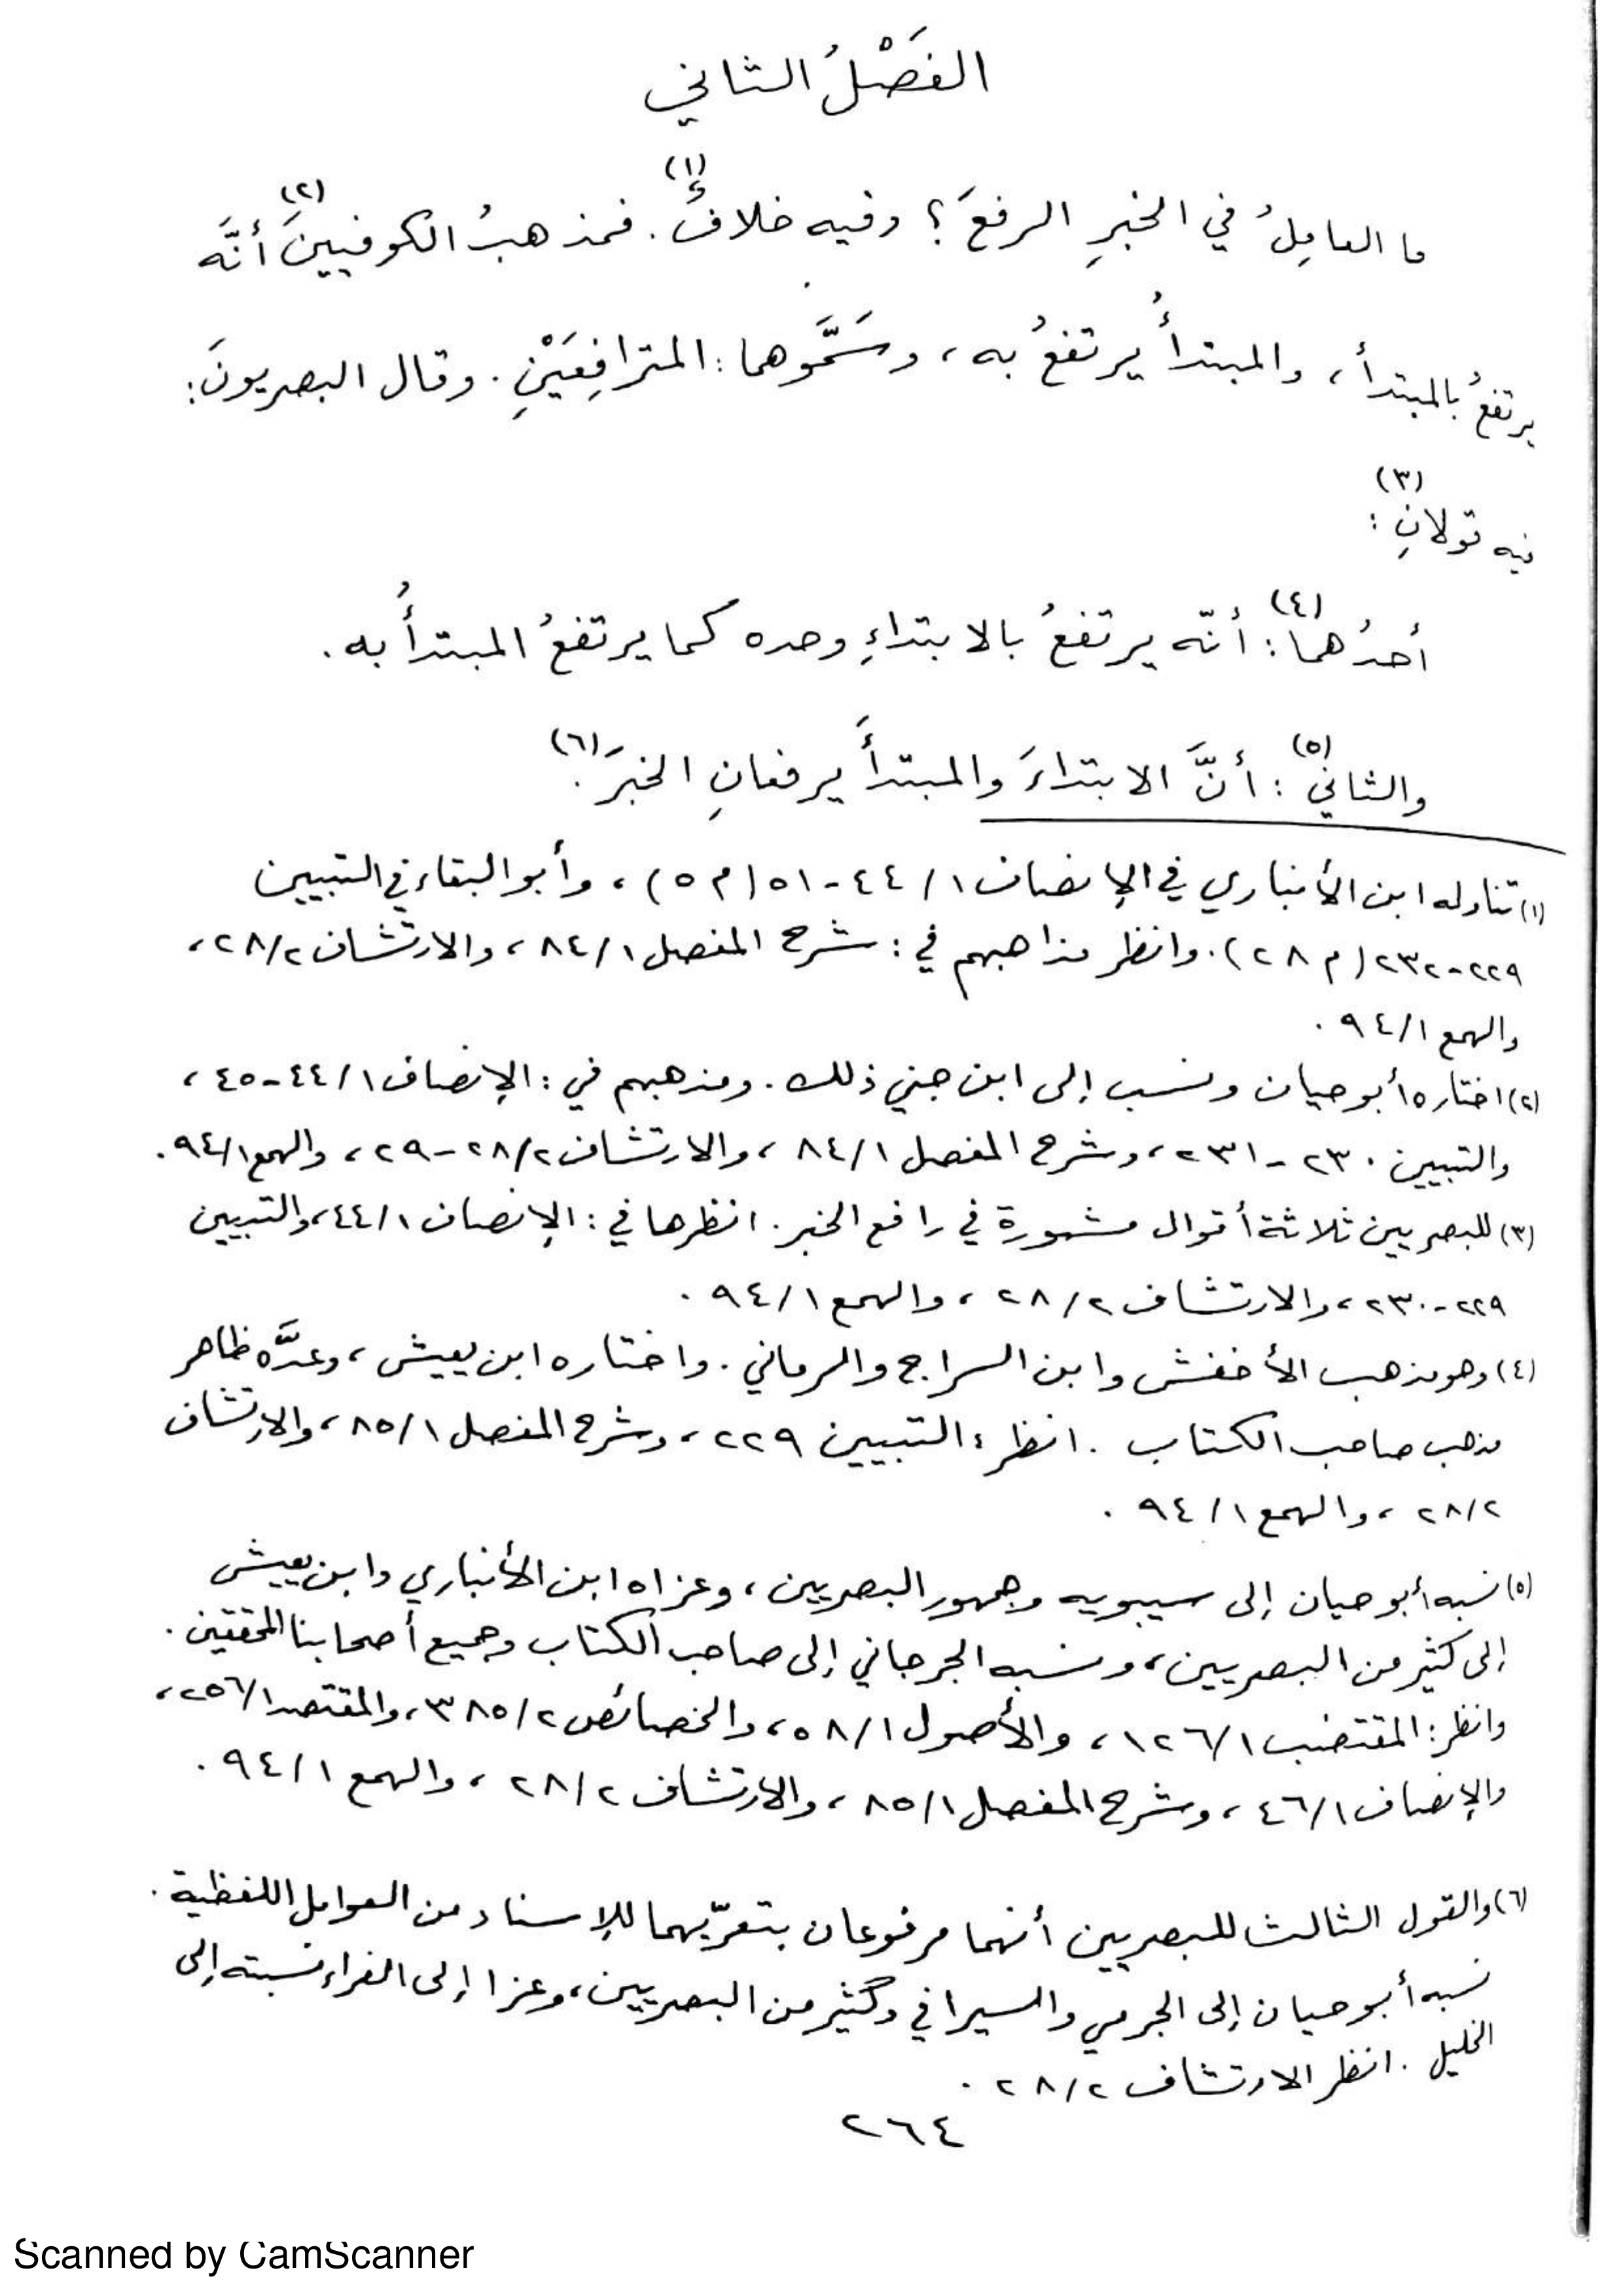 الفَصْلُ الثاني
ما العامِلُ في الخبرِ الرفعَ؟ وفيه خلافٌ(١). فمذهبُ الكوفيينَ(٢) أنَّه
يرتفعُ بالمبتدأ، والمبتدأُ يرتفعُ به، وسَمَّوهما: المترافِعَيْنِ. وقال البصريونَ:
فيه قولانِ(٣):
أحدُهما(٤): أنّه يرتفعُ بالابتداءِ وحده كما يرتفعُ المبتدأُ به.
والثاني(٥): أنَّ الابتداءَ والمبتدأَ يرفعانِ الخبرَ(٦).
(١) تناوله ابن الأنباري في الإنصاف ١/ ٤٤-٥١ (م ٥)، وأبو البقاء في التبيين
٢٢٩-٢٣٢ (م ٢٨). وانظر مذاهبهم في: شرح المفصل ١/ ٨٤، والارتشاف ٢/ ٢٨،
والهمع ١/ ٩٤.
(٢) اختاره أبو حيان ونسب إلى ابن جني ذلك. ومذهبهم في: الإنصاف ١/ ٤٤-٤٥،
والتبيين ٢٣٠-٢٣١، وشرح المفصل ١/ ٨٤، والارتشاف ٢/ ٢٨-٢٩، والهمع ١/ ٩٤.
(٣) للبصريين ثلاثة أقوال مشهورة في رافع الخبر. انظرها في: الإنصاف ١/ ٤٤، والتبيين
٢٢٩-٢٣٠، والارتشاف ٢/ ٢٨، والهمع ١/ ٩٤.
(٤) وهو مذهب الأخفش وابن السراج والرماني. واختاره ابن يعيش، وعدَّه ظاهر
مذهب صاحب الكتاب. انظر: التبيين ٢٢٩، وشرح المفصل ١/ ٨٥، والارتشاف
٢/ ٢٨، والهمع ١/ ٩٤.
(٥) نسبه أبو حيان إلى سيبويه وجمهور البصريين، وعزاه ابن الأنباري وابن يعيش
إلى كثير من البصريين، ونسبه الجرجاني إلى صاحب الكتاب وجميع أصحابنا المحققين.
وانظر: المقتضب ١/ ١٢٦، والأصول ١/ ٥٨، والخصائص ٢/ ٣٨٥، والمقتصد ١/ ٢٥٦،
والإنصاف ١/ ٤٦، وشرح المفصل ١/ ٨٥، والارتشاف ٢/ ٢٨، والهمع ١/ ٩٤.
(٦) والقول الثالث للبصريين أنهما مرفوعان بتعرّيهما للإسناد من العوامل اللفظية.
نسبه أبو حيان إلى الجرمي والسيرافي وكثير من البصريين، وعزا إلى الفراء نسبته إلى
الخليل. انظر الارتشاف ٢/ ٢٨.
٢٦٤
Scanned by CamScanner